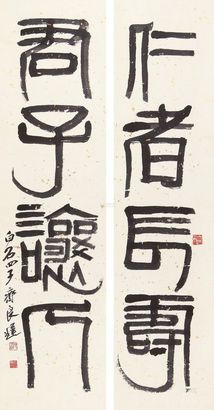 仁者長壽
君子讓人
白石四子齊良遲